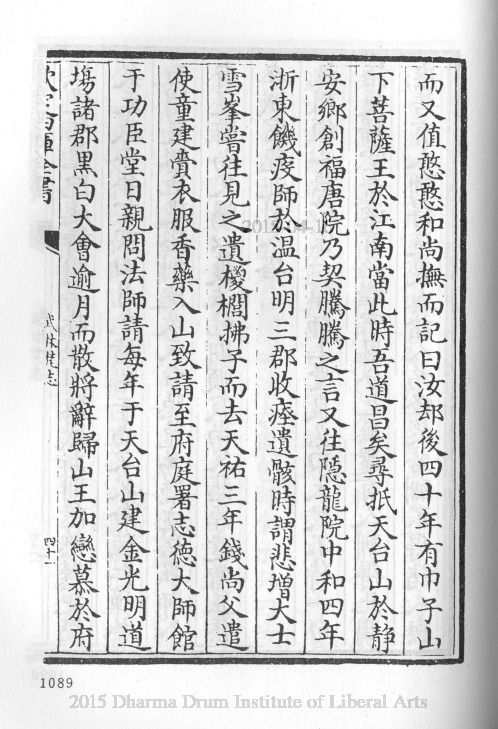 而又值憨憨和尚撫而記曰汝却後四十年有巾子山
下菩薩王於江南當此時吾道昌矣尋抵天台山於静
安鄉創福唐院乃契騰騰之言又往隠龍院中和四年
浙東饑疫師於温台明三郡收瘞遺骸時謂悲增大士
雪峯嘗往見之遺椶櫚拂子而去天祐三年錢尚父遣
使童建賫衣服香藥入山致請至府庭署志德大師館
于功臣堂日親問法師請每年于天台山建金光明道
塲諸郡黒白大會逾月而散將辭歸山王加戀慕於府
欽定四庫全書
武林梵志
四十一
1089
2015 Dharma Drum Institute of Liberal Arts